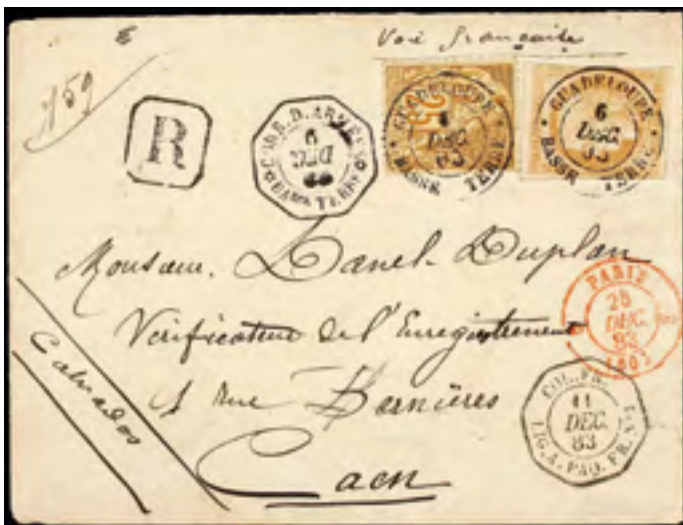 Voie française
159
R
COR. D. ARMÉES
6
DEC
Bsse TERRE
25
GUADELOUPE
6
DEC.
83
BASSE TERRE
GUADELOUPE
6
DEC.
83
BASSE TERRE
Monsieur. Lanel-Duplan
Vérificateur de l'Enregistrement
1 rue Bernières
Caen
Calvados
PARIS
25
DEC.
83
COL. FR.
11
DEC.
83
LIG. A. PAQ. FR.